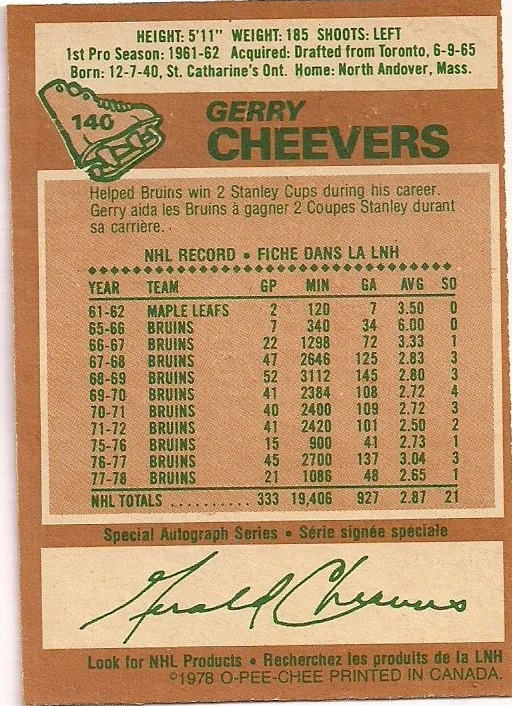 HEIGHT: 5'11" WEIGHT: 185 SHOOTS: LEFT
1st Pro Season: 1961-62 Acquired: Drafted from Toronto, 6-9-65
Born: 12-7-40, St. Catharine's Ont. Home: North Andover, Mass.
140
GERRY
CHEEVERS
Helped Bruins win 2 Stanley Cups during his career.
Gerry aida les Bruins à gagner 2 Coupes Stanley durant
sa carrière.
NHL RECORD • FICHE DANS LA LNH
YEAR TEAM GP MIN GA AVG SO
61-62 MAPLE LEAFS 2 120 7 3.50 0
65-66 BRUINS 7 340 34 6.00 0
66-67 BRUINS 22 1298 72 3.33 1
67-68 BRUINS 47 2646 125 2.83 3
68-69 BRUINS 52 3112 145 2.80 3
69-70 BRUINS 41 2384 108 2.72 4
70-71 BRUINS 40 2400 109 2.72 3
71-72 BRUINS 41 2420 101 2.50 2
75-76 BRUINS 15 900 41 2.73 1
76-77 BRUINS 45 2700 137 3.04 3
77-78 BRUINS 21 1086 48 2.65 1
NHL TOTALS .......... 333 19,406 927 2.87 21
Special Autograph Series • Série signée spéciale
Gerald Cheevers
Look for NHL Products • Recherchez les produits de la LNH
©1978 O-PEE-CHEE PRINTED IN CANADA.